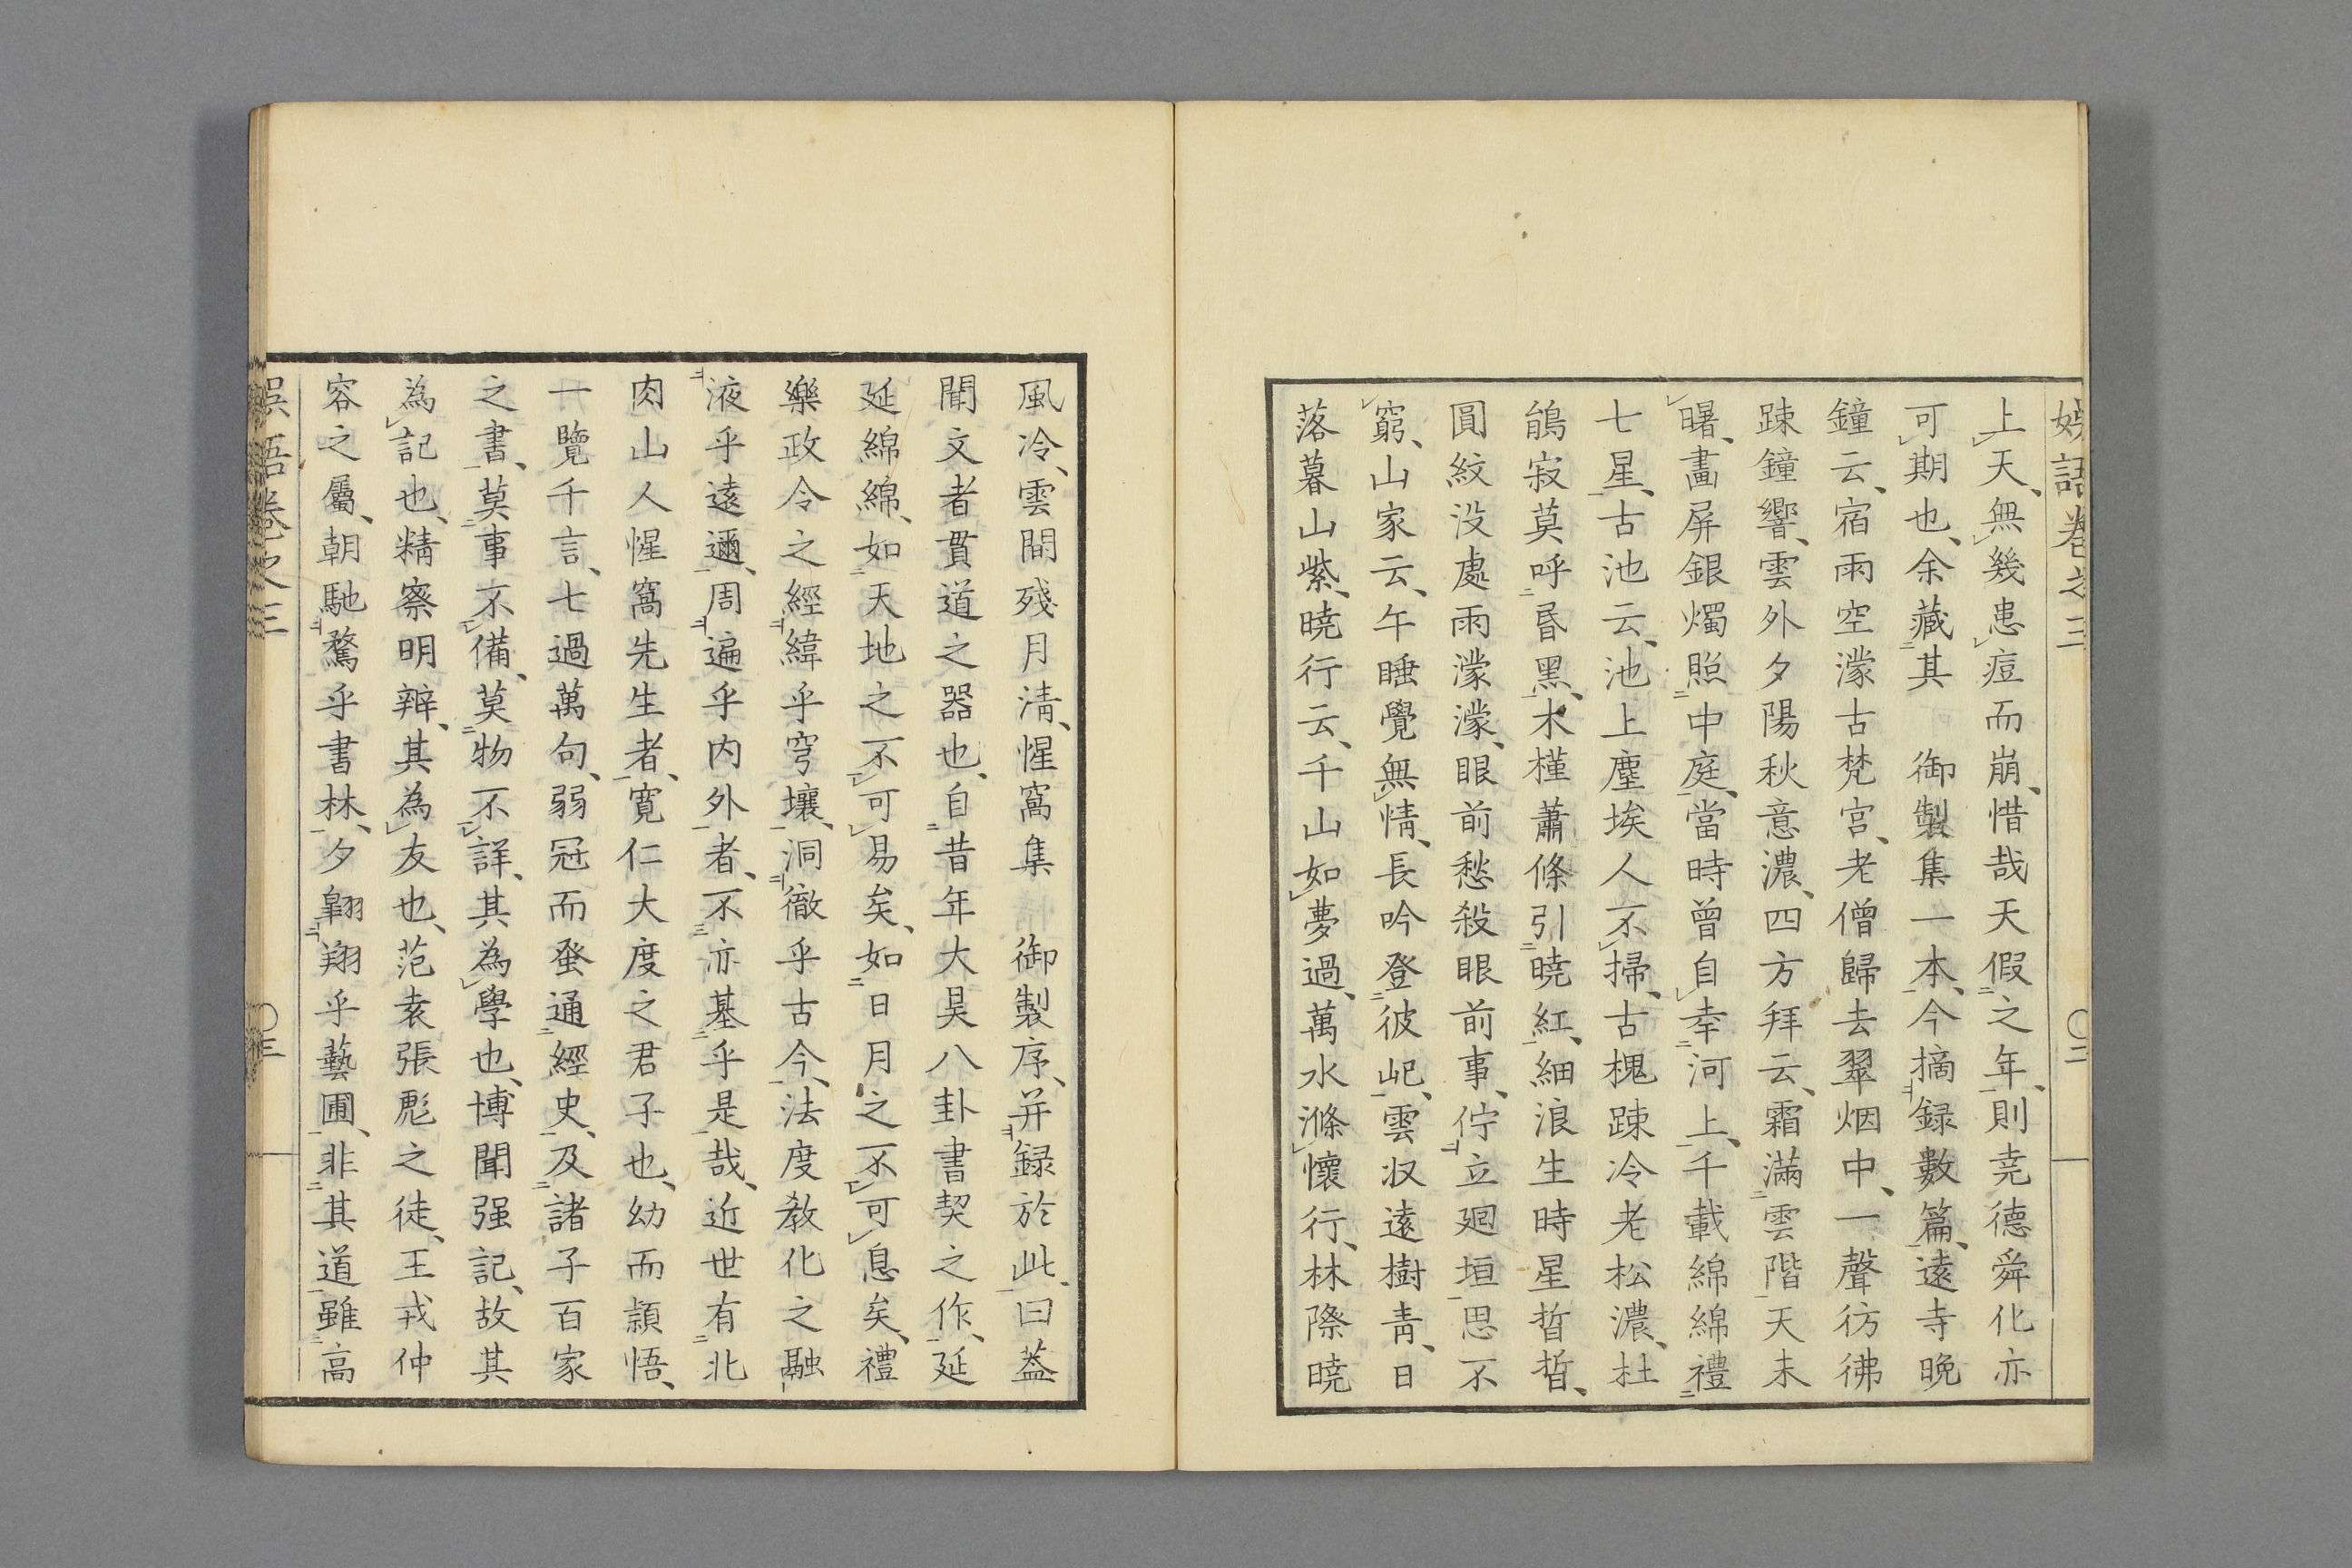 娯語卷之三
〇二
上天、無幾患痘而崩、惜哉天假之年、則堯德舜化亦
可期也、余藏其 御製集一本、今摘録數篇、遠寺晩
鐘云、宿雨空濛古梵宮、老僧歸去翠烟中、一聲彷彿
踈鐘響、雲外夕陽秋意濃、四方拜云、霜滿雲階天未
曙、畵屏銀燭照中庭、當時曾自幸河上、千載綿綿禮
七星、古池云、池上塵埃人不掃、古槐踈冷老松濃、杜
鵑寂莫呼昏黑、木槿蕭條引曉紅、細浪生時星晢晢、
圓紋没處雨濛濛、眼前愁殺眼前事、佇立廻垣思不
窮、山家云、午睡覺無情、長吟登彼屺、雲収遠樹靑、日
落暮山紫、曉行云、千山如夢過、萬水滌懷行、林際曉
風冷、雲間殘月淸、惺窩集 御製序、并録於此、曰葢
聞文者貫道之器也、自昔年大昊八卦書契之作、延
延綿綿、如天地之不可易矣、如日月之不可息矣、禮
樂政令之經緯乎穹壤、洞徹乎古今、法度敎化之融
液乎遠邇、周遍乎内外者、不亦基乎是哉、近世有北
肉山人惺窩先生者、寬仁大度之君子也、幼而頴悟、
一覽千言、七過萬句、弱冠而發通經史、及諸子百家
之書、莫事不備、莫物不詳、其為學也、博聞强記、故其
為記也、精察明辨、其為友也、范袁張彪之徒、王戎仲
容之屬、朝馳騖乎書林、夕翺翔乎藝圃、非其道雖高
娯語卷之三
〇三